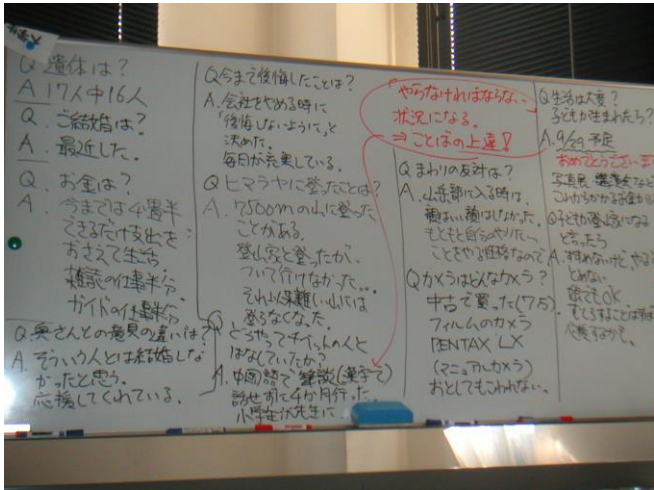 Q 遺体は?
A 17人中16人
Q. ご結婚は?
A. 最近した。
Q. お金は?
A. 今までは4畳半
できるだけ支出を
おさえて生活
雑誌の仕事半分、
ガイドの仕事半分
Q. 奥さんとの意見の違いは?
A. そういう人とは結婚しな
かったと思う。
応援してくれている。
Q 今まで後悔したことは?
A. 会社をやめる時に
「後悔しないように」と
決めた。
毎日が充実している。
Q ヒマラヤに登ったことは?
A. 7500mの山に登った
ことがある。
登山家と登ったが、
ついて行けなかった…
それ以来難しい山には
登らなくなった。
Q どうやってチベットの人と
はなしていたか?
A. 中国語で筆談(漢字で)
話せずに4か月行った。
小学生が先生に
やらなければならない
状況になる。
⇒ ことばの上達!
Q まわりの反対は?
A. 山岳部に入る時は、
顔はいい顔はしなかった。
もともと自分のやりたい
ことをやる性格なので
Q カメラはどんなカメラ?
中古で買った(7万)
フィルムのカメラ
PENTAX LX
(マニュアルカメラ)
おとしてもこわれない。
Q 生活は大変?
子どもが生まれたら?
A. 9/29 予定
おめでとうございま
写真展 講演会など
これからかかるお金が
Q 子どもが登山家になる
と言ったら
A. すすめないけど、やる
とめない
娘でもOK